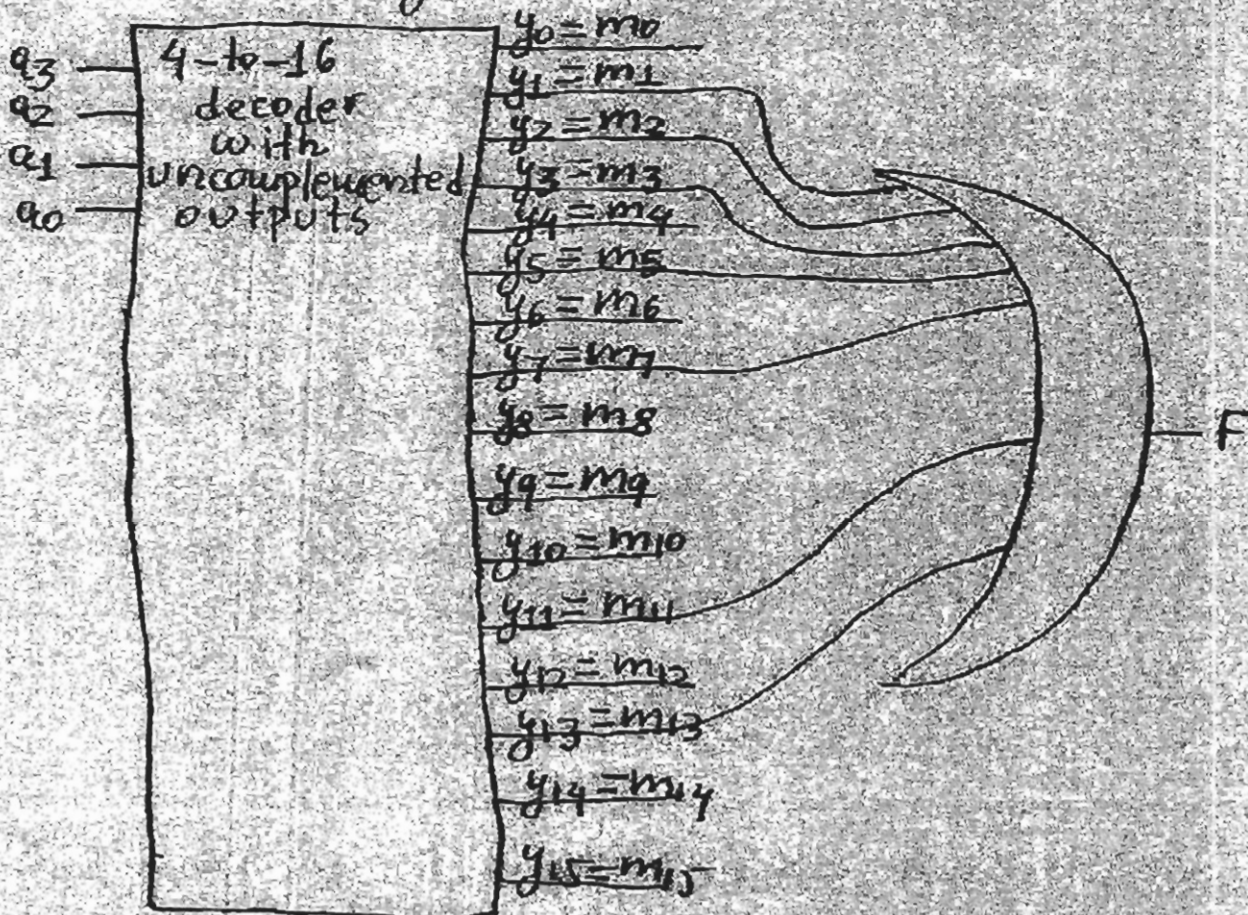 a3
a2
a1
a0
4-to-16
decoder
with
uncouplemented
outputs
y0=m0
y1=m1
y2=m2
y3=m3
y4=m4
y5=m5
y6=m6
y7=m7
y8=m8
y9=m9
y10=m10
y11=m11
y12=m12
y13=m13
y14=m14
y15=m15
F